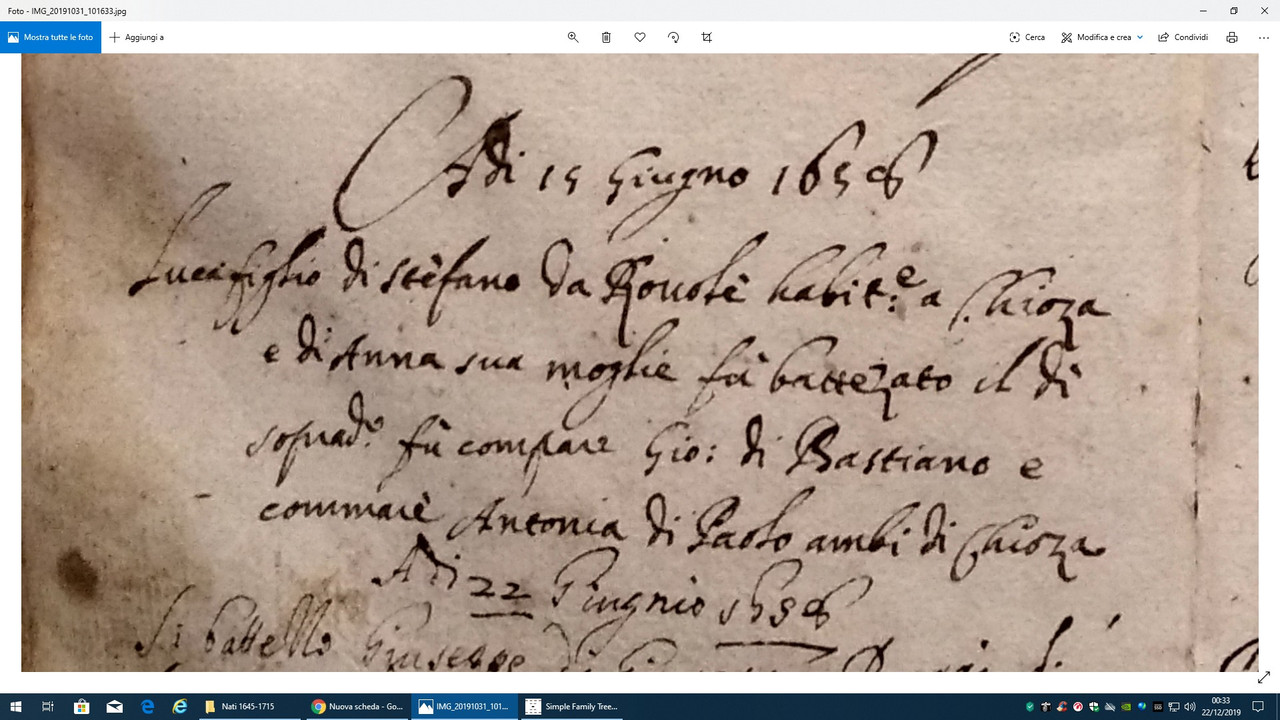 Foto - IMG_20191031_101633.jpg
Mostra tutte le foto
Aggiungi a
Cerca
Modifica e crea
Condividi
Adi 15 Giugno 1656
Luca figlio di stefano da Rovolè habit:e a Chioza
e di Anna sua moglie fù battezato il dì
soprad.o fù compare Gio: di Bastiano e
commare Antonia di Paolo ambi di Chioza
Adi 22 Giugnio 1656
Si battello Giuseppe di
Nati 1645-1715
Nuova scheda - Go...
IMG_20191031_101...
Simple Family Tree...
00:33
22/12/2019